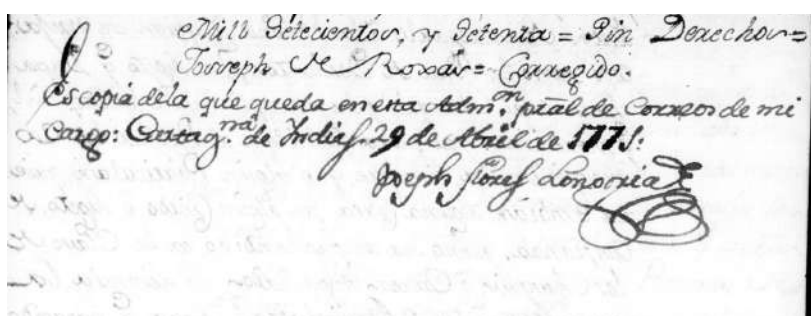 Mill Setecientos, y Setenta = Sin Derechos =
Joseph de Roxas = Corregido.
Es copia dela que queda en esta Adm.on pral de Correos de mi
cargo: Cartag.na de Indias 29 de Abril de 1771.
Joseph flores